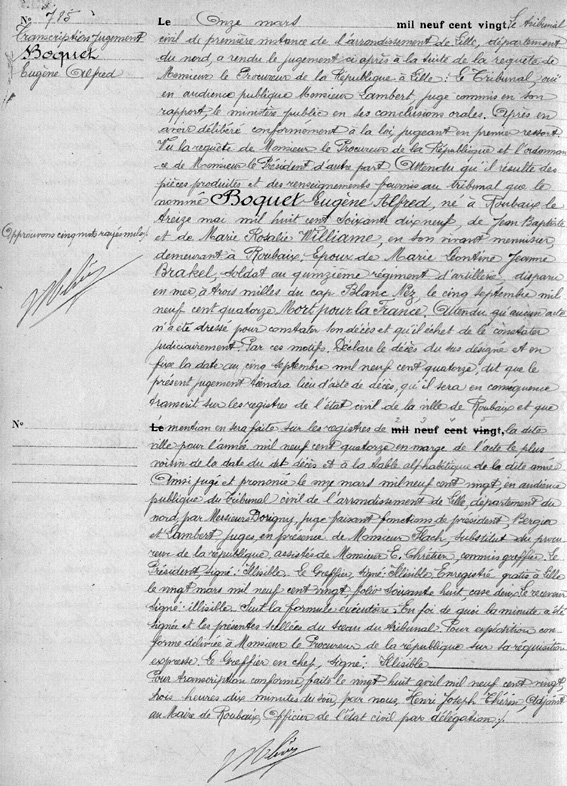 N° 785
Transcription Jugement
Boquet
Eugène Alfred
Approuvons cinq mots rayés nuls.
Le Onze mars mil neuf cent vingt, le tribunal
civil de première instance de l'arrondissement de Lille, département
du nord, a rendu le jugement ci après à la suite de la requête de
Monsieur le Procureur de la République à Lille : Le Tribunal, ouï
en audience publique Monsieur Lambert, juge commis en son
rapport, le ministère public en ses conclusions orales. Après en
avoir délibéré conformément à la loi, jugeant en premier ressort
Vu la requête de Monsieur le Procureur de la République et l'ordonnan-
ce de Monsieur le Président d'autre part. Attendu qu'il résulte des
pièces produites et des renseignements fournis au tribunal que le
nommé Boquet Eugène Alfred, né à Roubaix le
treize mai mil huit cent soixante dix neuf, de Jean Baptiste
et de Marie Rosalie Williame, en son vivant menuisier,
demeurant à Roubaix, Epoux de Marie Léontine Jeanne
Brakel, soldat au quinzième régiment d'artillerie, disparu
en mer, à trois milles du cap Blanc Nez, le cinq septembre mil
neuf cent quatorze. Mort pour la France. Attendu qu'aucun acte
n'a été dressé pour constater son décès et qu'il échet de le constater
judiciairement. Par ces motifs. Déclare le décès du sus désigné et en
fixe la date au cinq septembre mil neuf cent quatorze, dit que le
présent jugement tiendra lieu d'acte de décès, qu'il sera en conséquence
transcrit sur les registres de l'état civil de la ville de Roubaix et que
N° Le mention en sera faite sur les registres de mil neuf cent vingt, la dite
ville pour l'année mil neuf cent quatorze en marge de l'acte le plus
voisin de la date du dit décès et à la table alphabétique de la dite année
Ainsi jugé et prononcé le onze mars mil neuf cent vingt, en audience
publique du Tribunal civil de l'arrondissement de Lille, département du
nord, par Messieurs Dorigny, juge faisant fonctions de président, Bergia
et Lambert, juges, en présence de Monsieur Flach, substitut du procu-
reur de la république, assistés de Monsieur E. Chrétien, commis greffier. Le
Président, signé : Illisible. Le Greffier, signé : Illisible. Enregistré, gratis à Lille
le vingt mars mil neuf cent vingt, folio soixante huit case deux, le receveur
signé : illisible. Suit la formule exécutoire. En foi de quoi la minute a été
signée et les présentes scellées du sceau du tribunal. Pour expédition con-
forme délivrée à Monsieur le Procureur de la république sur sa réquisition
expresse. Le Greffier en chef, signé : Illisible
Pour transcription conforme faite le vingt huit avril mil neuf cent vingt
trois heures dix minutes du soir, par nous, Henri Joseph Thérin Adjoint
au Maire de Roubaix, Officier de l'état civil par délégation.